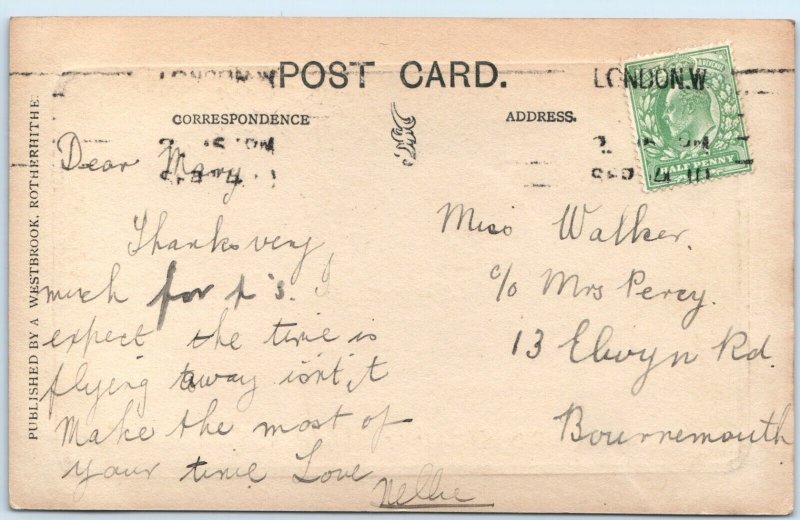 POST CARD.
LONDON.W
LONDON.W
CORRESPONDENCE
ADDRESS.
HALF PENNY
PUBLISHED BY A WESTBROOK, ROTHERHITHE.
Dear Mary
Thanks very
much for p's. I
expect the time is
flying away isn't it
Make the most of
your time Love
Nellie
Miss Walker.
c/o Mrs Percy.
13 Elwyn Rd.
Bournemouth